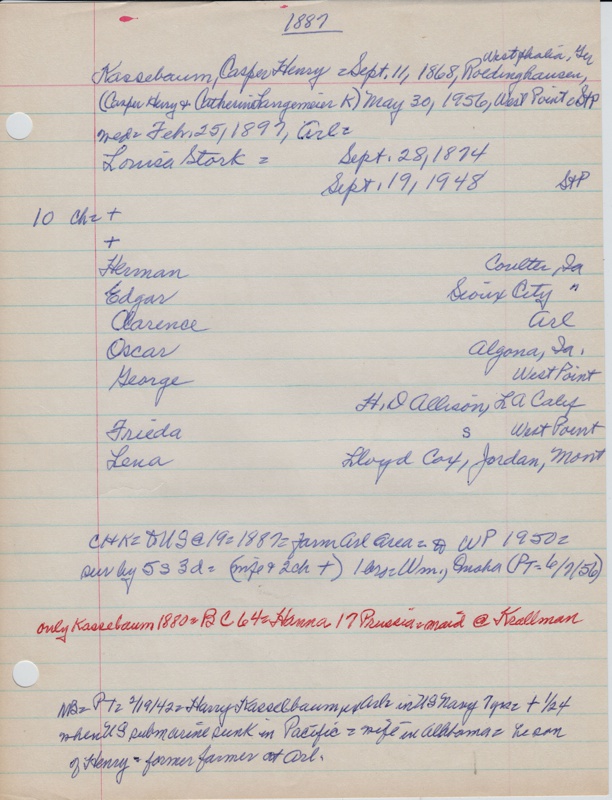 1887
Westphalia, Ger
Kassebaum, Casper Henry = Sept. 11, 1868, Roedinghausen,
(Casper Henry & Catherine Langemeier K) May 30, 1956, West Point, StP
med = Feb. 25, 1897, Arl =
Louisa Stork = Sept. 28, 1874
Sept. 19, 1948 StP
10 ch = +
+
Herman Coulter, Ia
Edgar Sioux City "
Clarence Arl
Oscar Algona, Ia.
George West Point
H. D Allison, LA Calif
Frieda s West Point
Lena Lloyd Cox, Jordan, Mont
CHK = to US @ 19 = 1887 = farm Arl area = to WP 1950 =
sur by 5s 3d = (wife & 2ch +) 1 bro = Wm., Omaha (PT = 6/7/56)
only Kassebaum 1880 = BC 64 = Hanna 17 Prussia = maid @ Krallman
NB = PT = 2/19/42 = Harry Kasselbaum, Arl = in US Navy 7 yrs = + 1/24
when US submarine sunk in Pacific = wife in Alabama = he son
of Henry = former farmer at Arl.